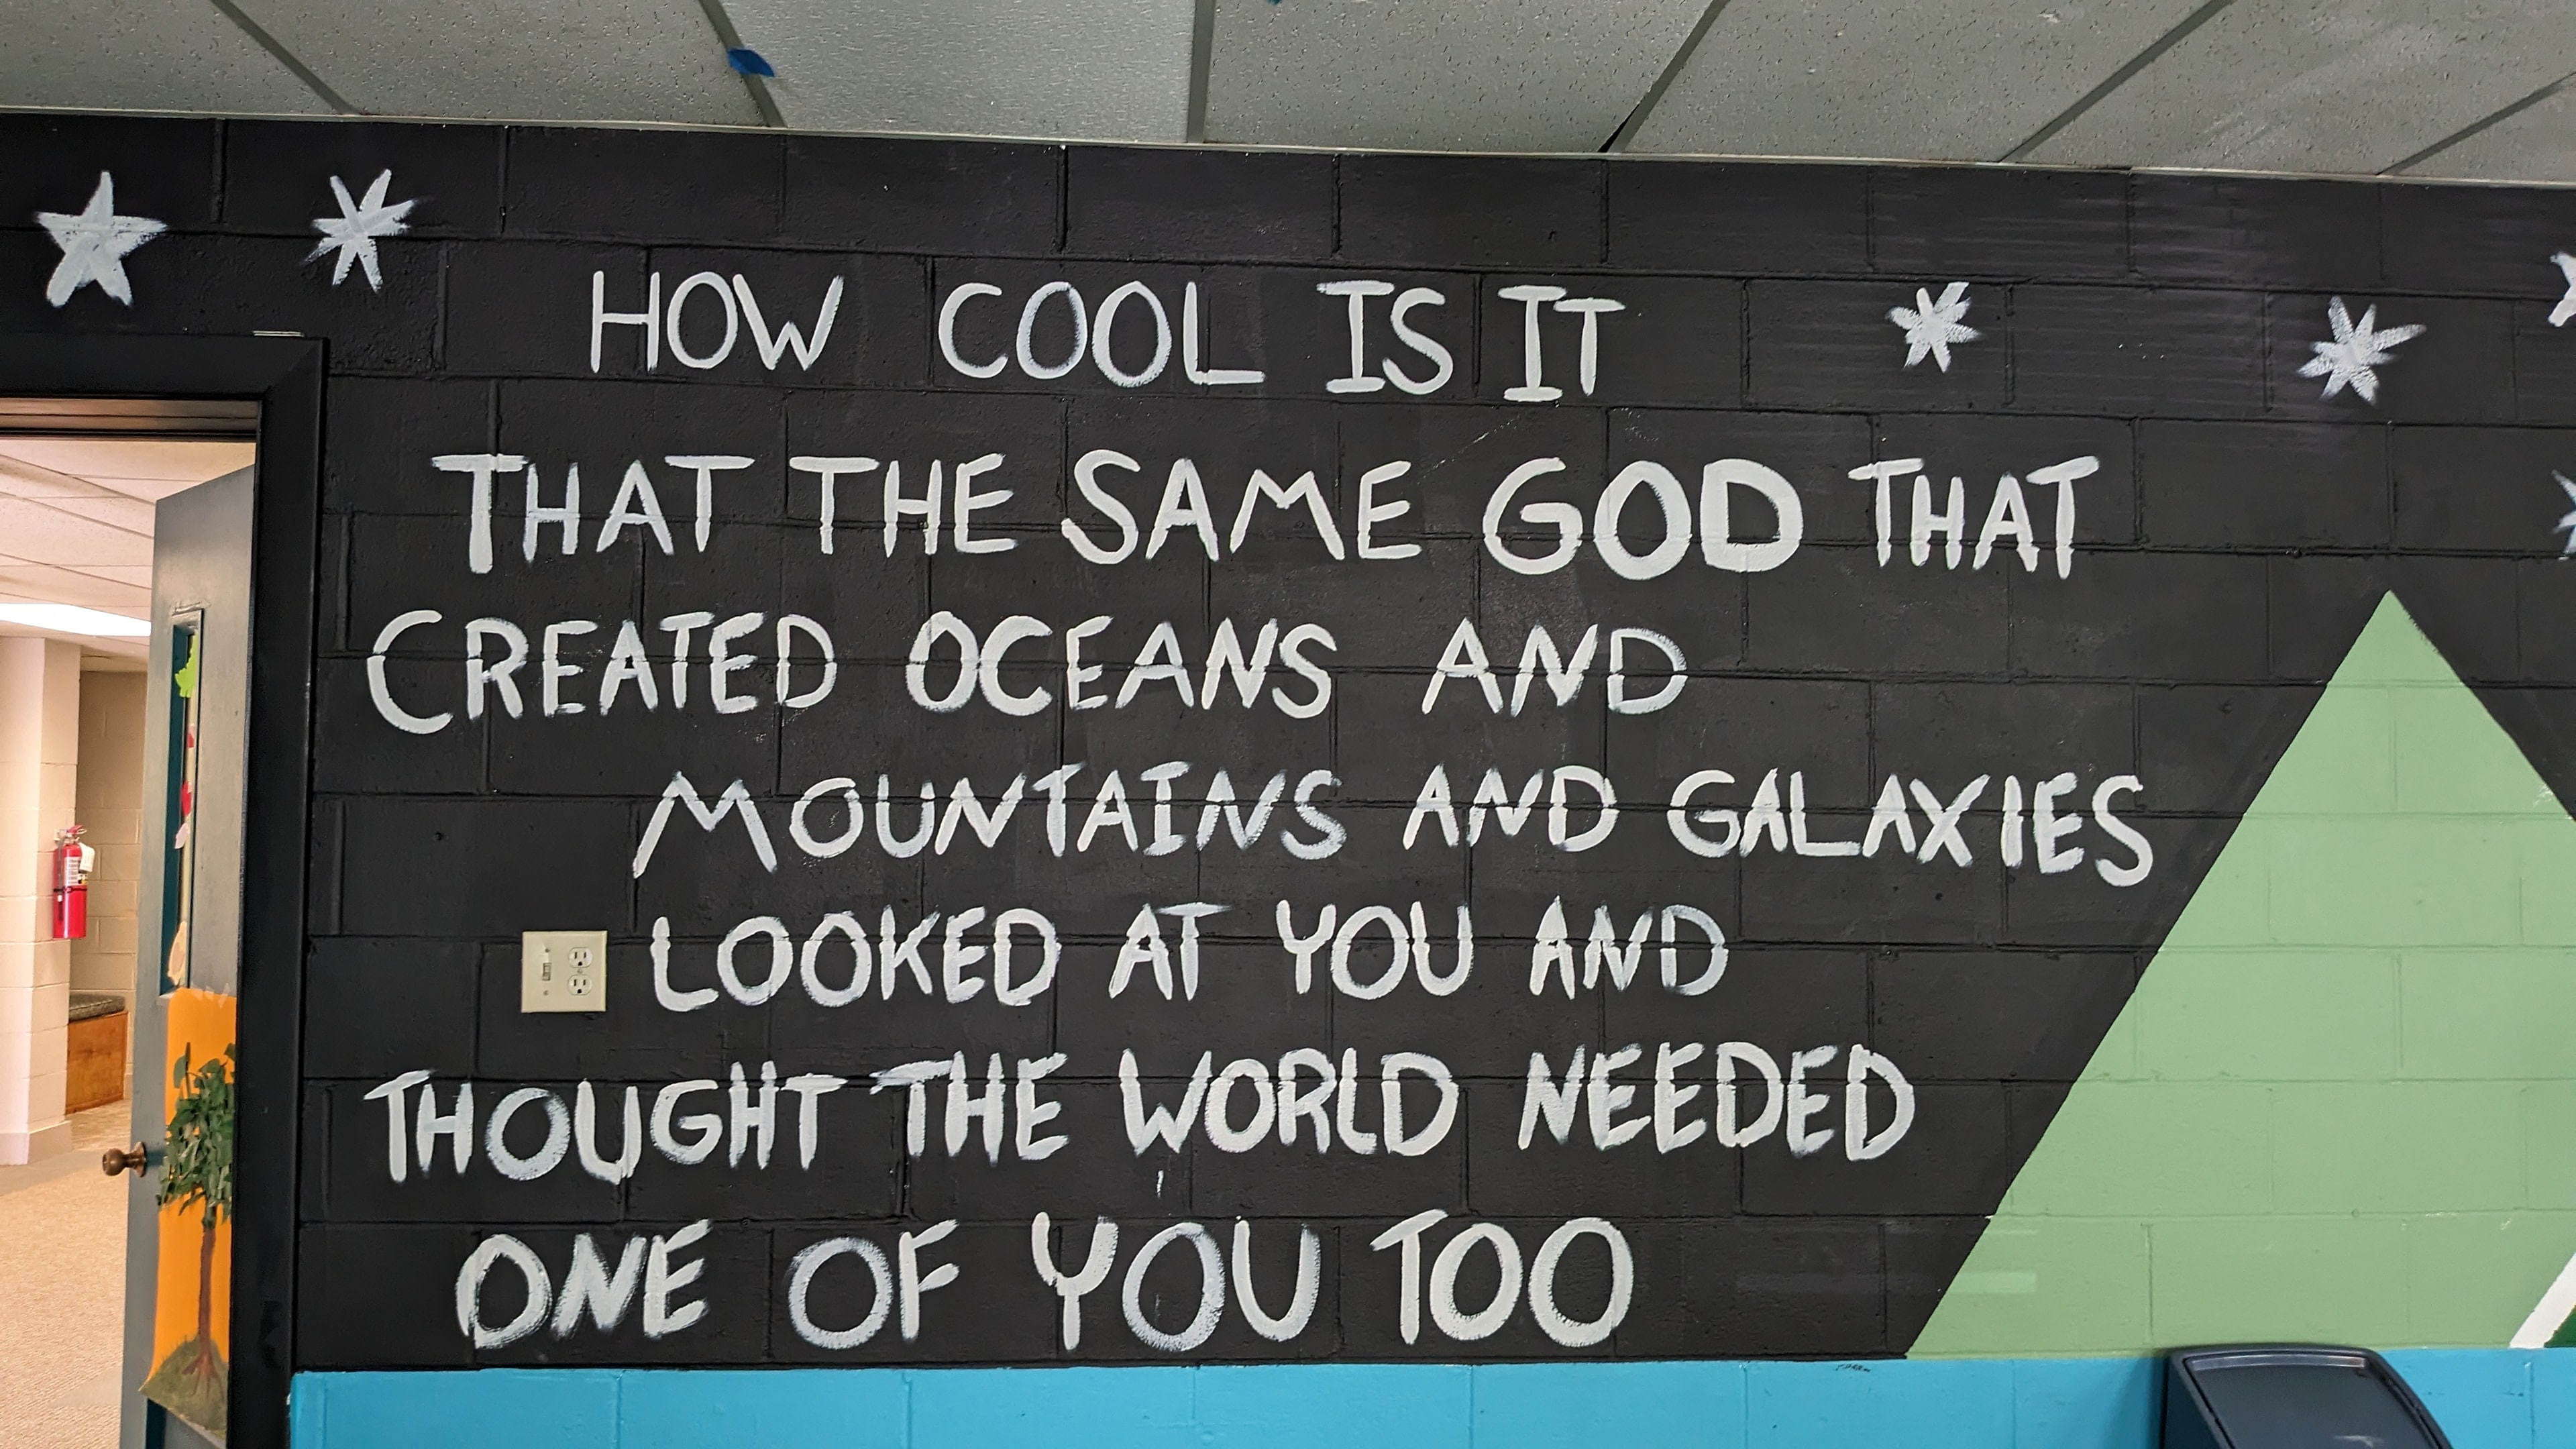 HOW COOL IS IT
THAT THE SAME GOD THAT
CREATED OCEANS AND
MOUNTAINS AND GALAXIES
LOOKED AT YOU AND
THOUGHT THE WORLD NEEDED
ONE OF YOU TOO